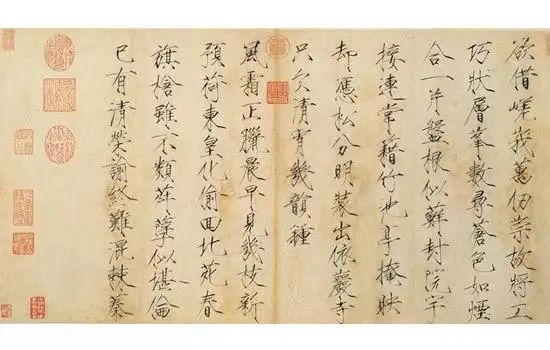 欲借嵯峨萬仞崇故將工
巧狀層峯數尋蒼色如煙
合一片盤根似蘚封院宇
接連常籍竹池亭掩映
却憑松分明裝出依巖寺
只欠清宵幾韻鍾
風霜正臘晨早見幾枝新
預荷東皇化偷回北苑春
旗槍雖不類荈蘗似堪倫
已有清榮諭終難混棘蓁